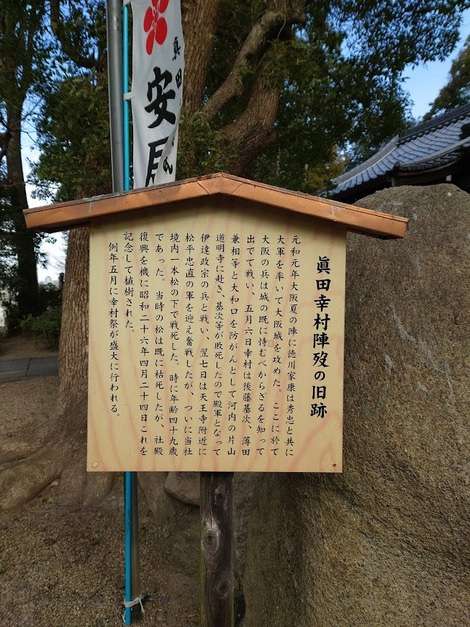 眞田
安居
眞田幸村陣歿の旧跡
元和元年大阪夏の陣に徳川家康は秀忠と共に
大軍を率いて大阪城を攻めた。ここに於て
大阪の兵は城の既に恃むべからざるを知って
出でて戦い、五月六日幸村は後藤基次、薄田
兼相等と大和口を防がんとして河内の片山
道明寺に赴き、基次等が敗死したので殿軍となって
伊達政宗の兵と戦い、翌七日は天王寺附近に
松平忠直の軍を迎え奮戦したが、ついに当社
境内一本松の下で戦死した。時に年齢四十九歳
であった。当時の松は既に枯死したが、社殿
復興を機に昭和二十六年四月二十四日これを
記念して植樹された。
例年五月に幸村祭が盛大に行われる。